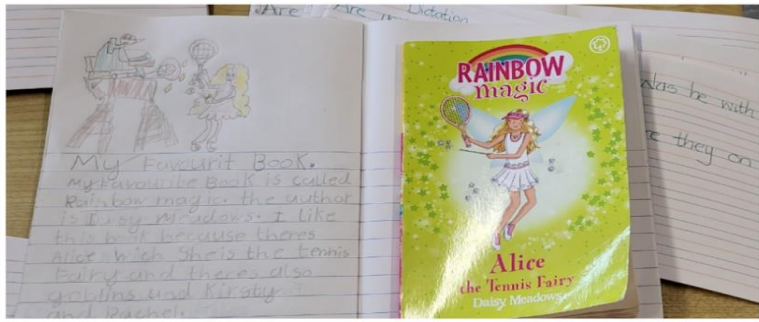 Are
Are
Dictation
My Favourit Book.
My Favourite Book is called
Rainbow magic. the author
is Daisy Meadows. I like
this book because theres
Alice wich She is the tennis
Fairy and theres also
goblins and Kirsty
and Rachel.
RAINBOW
magic
Alice
the Tennis Fairy
Daisy Meadows
Was he with
they on